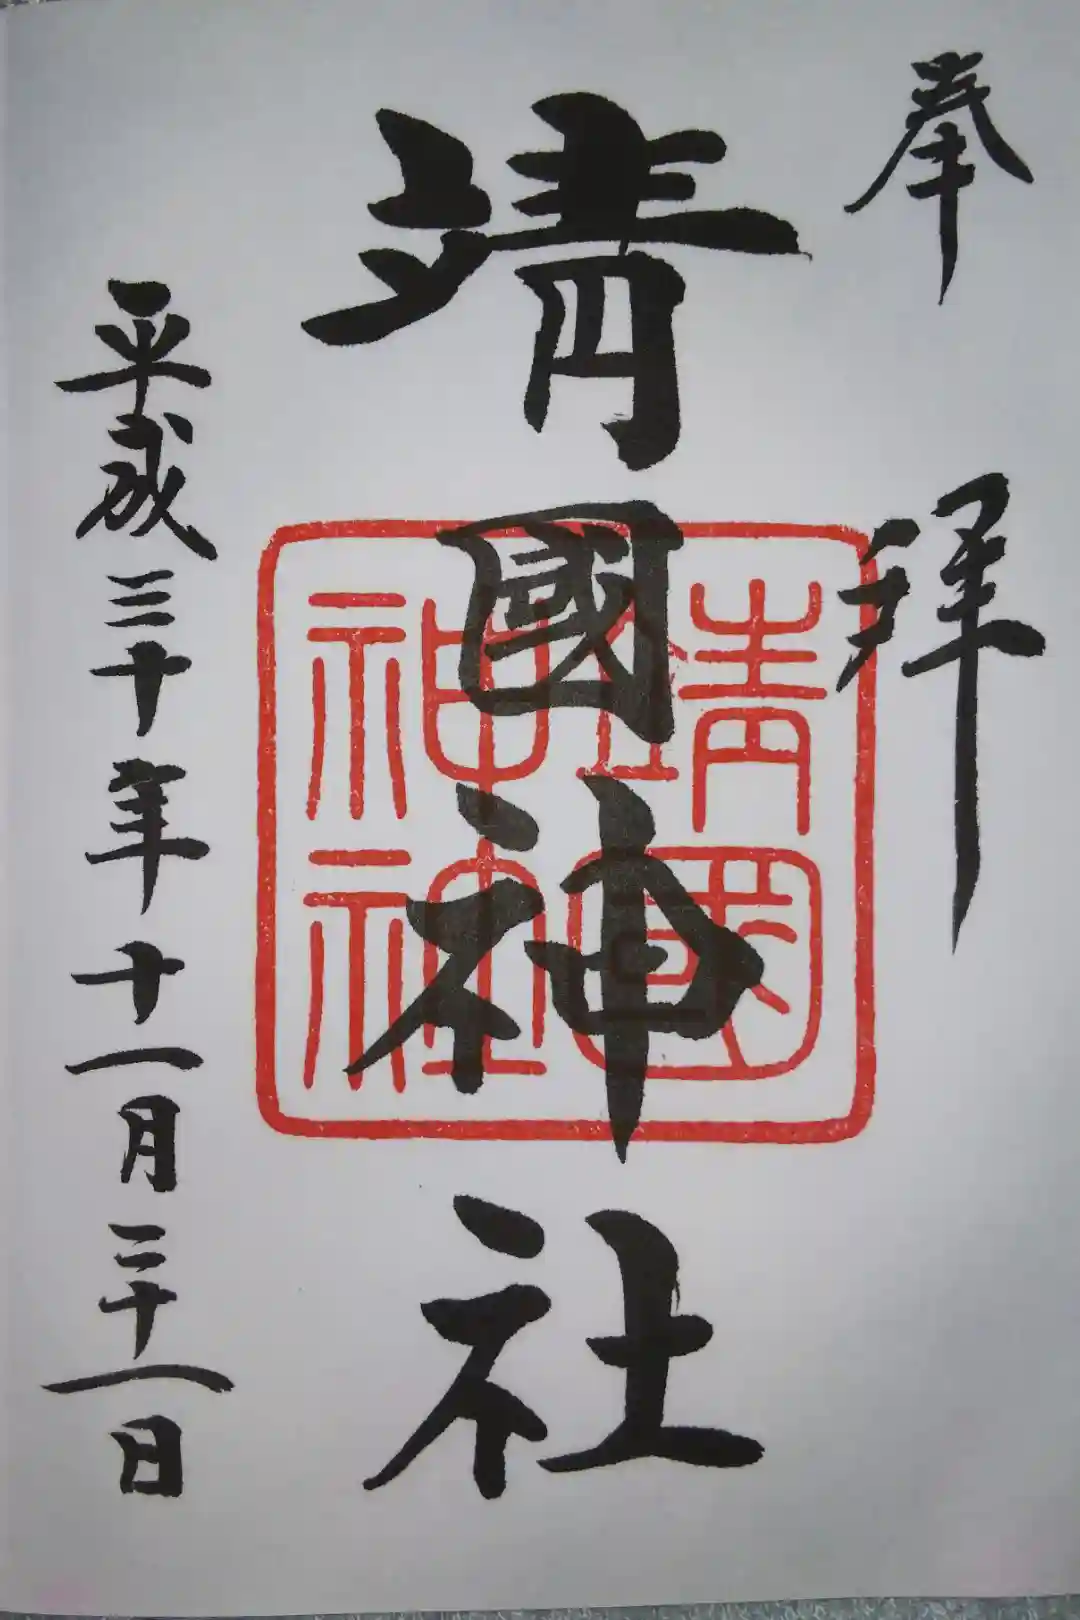 奉拝
靖國神社
靖國
神社
平成三十年十一月二十一日